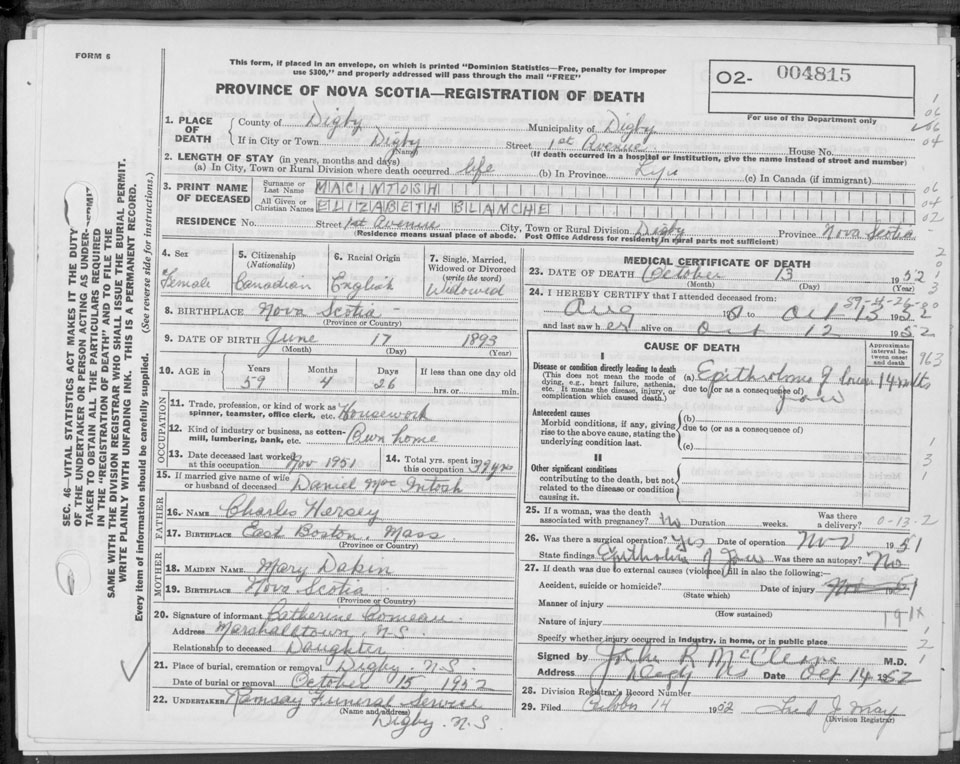 FORM 6
This form, if placed in an envelope, on which is printed "Dominion Statistics—Free, penalty for improper
use $300," and properly addressed will pass through the mail "FREE"
PROVINCE OF NOVA SCOTIA—REGISTRATION OF DEATH
O2- 004815
For use of the Department only
SEC. 46—VITAL STATISTICS ACT MAKES IT THE DUTY
OF THE UNDERTAKER OR PERSON ACTING AS UNDER-
TAKER TO OBTAIN ALL THE PARTICULARS REQUIRED
IN THE "REGISTRATION OF DEATH" AND TO FILE THE
SAME WITH THE DIVISION REGISTRAR WHO SHALL ISSUE THE BURIAL PERMIT.
WRITE PLAINLY WITH UNFADING INK. THIS IS A PERMANENT RECORD.
Every item of information should be carefully supplied. (See reverse side for instructions.)
1. PLACE OF DEATH County of Digby Municipality of Digby
If in City or Town Digby (Name) Street 1st Avenue House No.
(If death occurred in a hospital or institution, give the name instead of street and number)
2. LENGTH OF STAY (in years, months and days)
(a) In City, Town or Rural Division where death occurred life (b) In Province (c) In Canada (if immigrant)
3. PRINT NAME OF DECEASED Surname or Last Name MACINTOSH
All Given or Christian Names ELIZABETH BLANCHE
RESIDENCE No. Street 1st Avenue City, Town or Rural Division Digby Province Nova Scotia
(Residence means usual place of abode. Post Office Address for residents in rural parts not sufficient)
4. Sex Female
5. Citizenship (Nationality) Canadian
6. Racial Origin English
7. Single, Married, Widowed or Divorced (write the word) Widowed
8. BIRTHPLACE Nova Scotia
(Province or Country)
9. DATE OF BIRTH June 17 1893
(Month) (Day) (Year)
10. AGE in Years 59 Months 4 Days 26 If less than one day old
hrs. or min.
OCCUPATION
11. Trade, profession, or kind of work as
spinner, teamster, office clerk, etc. Housework
12. Kind of industry or business, as cotten-
mill, lumbering, bank, etc. Own home
13. Date deceased last worked
at this occupation Nov 1951
14. Total yrs. spent in
this occupation 39 yrs
15. If married give name of wife
or husband of deceased Daniel Mac Intosh
FATHER
16. NAME Charles Hersey
17. BIRTHPLACE East Boston, Mass
(Province or Country)
MOTHER
18. MAIDEN NAME Mary Dakin
19. BIRTHPLACE Nova Scotia
(Province or Country)
20. Signature of informant Catherine Comeau
Address Marshalltown, N.S.
Relationship to deceased Daughter
21. Place of burial, cremation or removal Digby. N.S.
Date of burial or removal October 15 1952
22. UNDERTAKER Ramsay Funeral Service
(Name and address)
Digby. N.S
MEDICAL CERTIFICATE OF DEATH
23. DATE OF DEATH October 13 1952
(Month) (Day) (Year)
24. I HEREBY CERTIFY that I attended deceased from:
59-4-26
Aug to Oct 13 1952
and last saw her alive on Oct 12 1952
CAUSE OF DEATH
Approximate interval between onset and death
I
Disease or condition directly leading to death
(This does not mean the mode of
dying, e.g., heart failure, asthenia,
etc. It means the disease, injury, or
complication which caused death.)
(a) Epithelioma of lower jaw 14 mths
due to (or as a consequence of)
Antecedent causes
Morbid conditions, if any, giving
rise to the above cause, stating the
underlying condition last.
(b)
due to (or as a consequence of)
(c)
II
Other significant conditions
contributing to the death, but not
related to the disease or condition
causing it.
25. If a woman, was the death
associated with pregnancy? No Duration weeks. Was there
a delivery? 0-13-2
26. Was there a surgical operation? Yes Date of operation Nov 1951
State findings Epithelioma of Jaw Was there an autopsy? No
27. If death was due to external causes (violence) fill in also the following:—
Accident, suicide or homicide? Date of injury
(State which)
Manner of injury
(How sustained)
Nature of injury
191x
Specify whether injury occurred in industry, in home, or in public place
Signed by R McCleave M.D.
Address Digby NS Date Oct 14 1952
28. Division Registrar's Record Number
29. Filed October 14 1952
(Division Registrar)